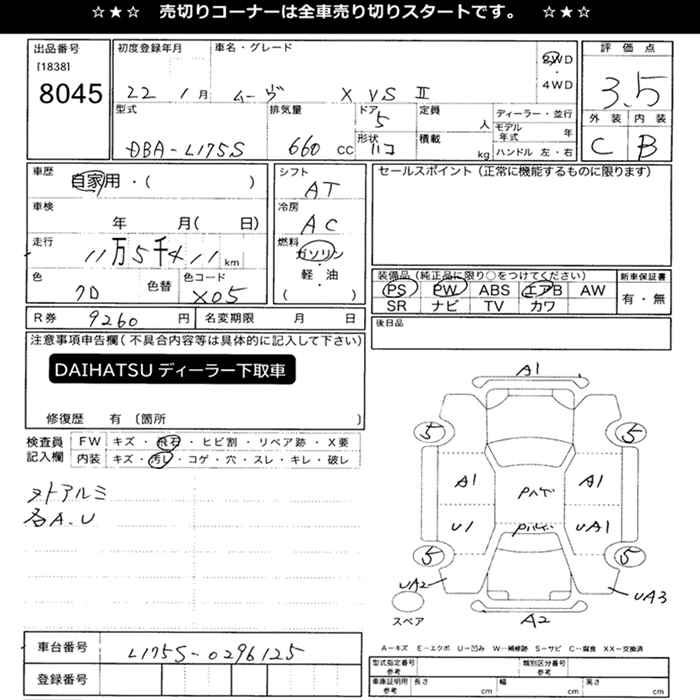 ☆★☆ 売切りコーナーは全車売り切りスタートです。 ☆★☆
出品番号 初度登録年月 車名・グレード 2WD 評価点
[1838] 4WD
8045 22年1月 ムーヴ X VS II 3.5
型式 排気量 ドア 5 定員 人 ディーラー・並行 外装 内装
DBA-L175S 660 CC 形状 ハコ 積載 kg モデル年式 年 C B
ハンドル 左・右
車歴 自家用・( ) シフト AT セールスポイント(正常に機能するものに限ります)
車検 年 月( 日) 冷房 AC
走行 11万5千×11 km 燃料 ガソリン
軽・油
( )
色 色替 色コード X05 装備品(純正品に限り○をつけてください) 新車保証書
PS PW ABS エアB AW 有・無
SR ナビ TV カワ
R券 9260 円 名変期限 月 日 後日品
注意事項申告欄(不具合内容等は具体的に記入して下さい)
DAIHATSU ディーラー下取車
修復歴 有 〔箇所
検査員 FW キズ・飛石・ヒビ割・リペア跡・X要
記入欄 内装 キズ・汚レ・コゲ・穴・スレ・キレ・破レ
各A.U
A1
5 5
A1 A1
U1 UA1
5 5
UA2 UA3
スペア A2
A-キズ E-エクボ U-凹み W-補修跡 S-サビ C-腐食 XX-交換済
車台番号 L175S-0296125
登録番号
型式指定番号 参考 類別区分番号 参考
車庫証明用 参考 長さ cm 幅 cm 高さ cm